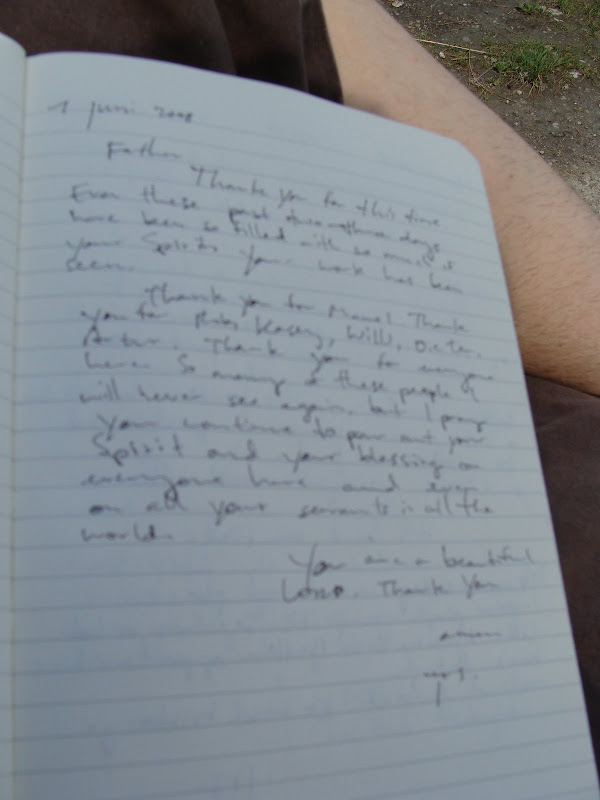 1 Juni 2008
Father
Thank you for this time
Even these past days
have been so filled with so much of
your Spirit. Your work has been
seen.
Thank you for Manuel. Thank
you for Rob, Kasey, Willi, Dieter,
Artur. Thank you for everyone
here. So many of these people I
will never see again, but I pray
You continue to pour out your
Spirit and your blessing on
everyone here and even
on all your servants in all the
world.
You are a beautiful
LORD. Thank You
amen